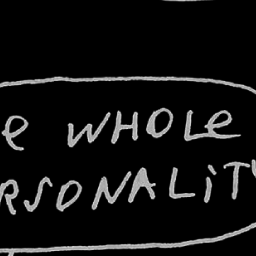 e WHOLE
RSONALITY